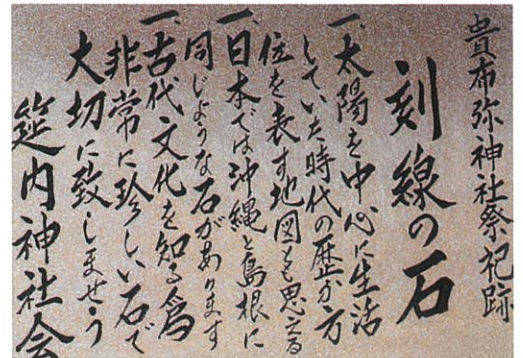 貴布弥神社祭祀跡
刻線の石
一、太陽を中心に生活
していた時代の歴か方
位を表す地図とも思える
一、日本では沖縄と島根に
同じような石があります
一、古代文化を知る為
非常に珍しい石で
大切に致しませう
筵内神社会